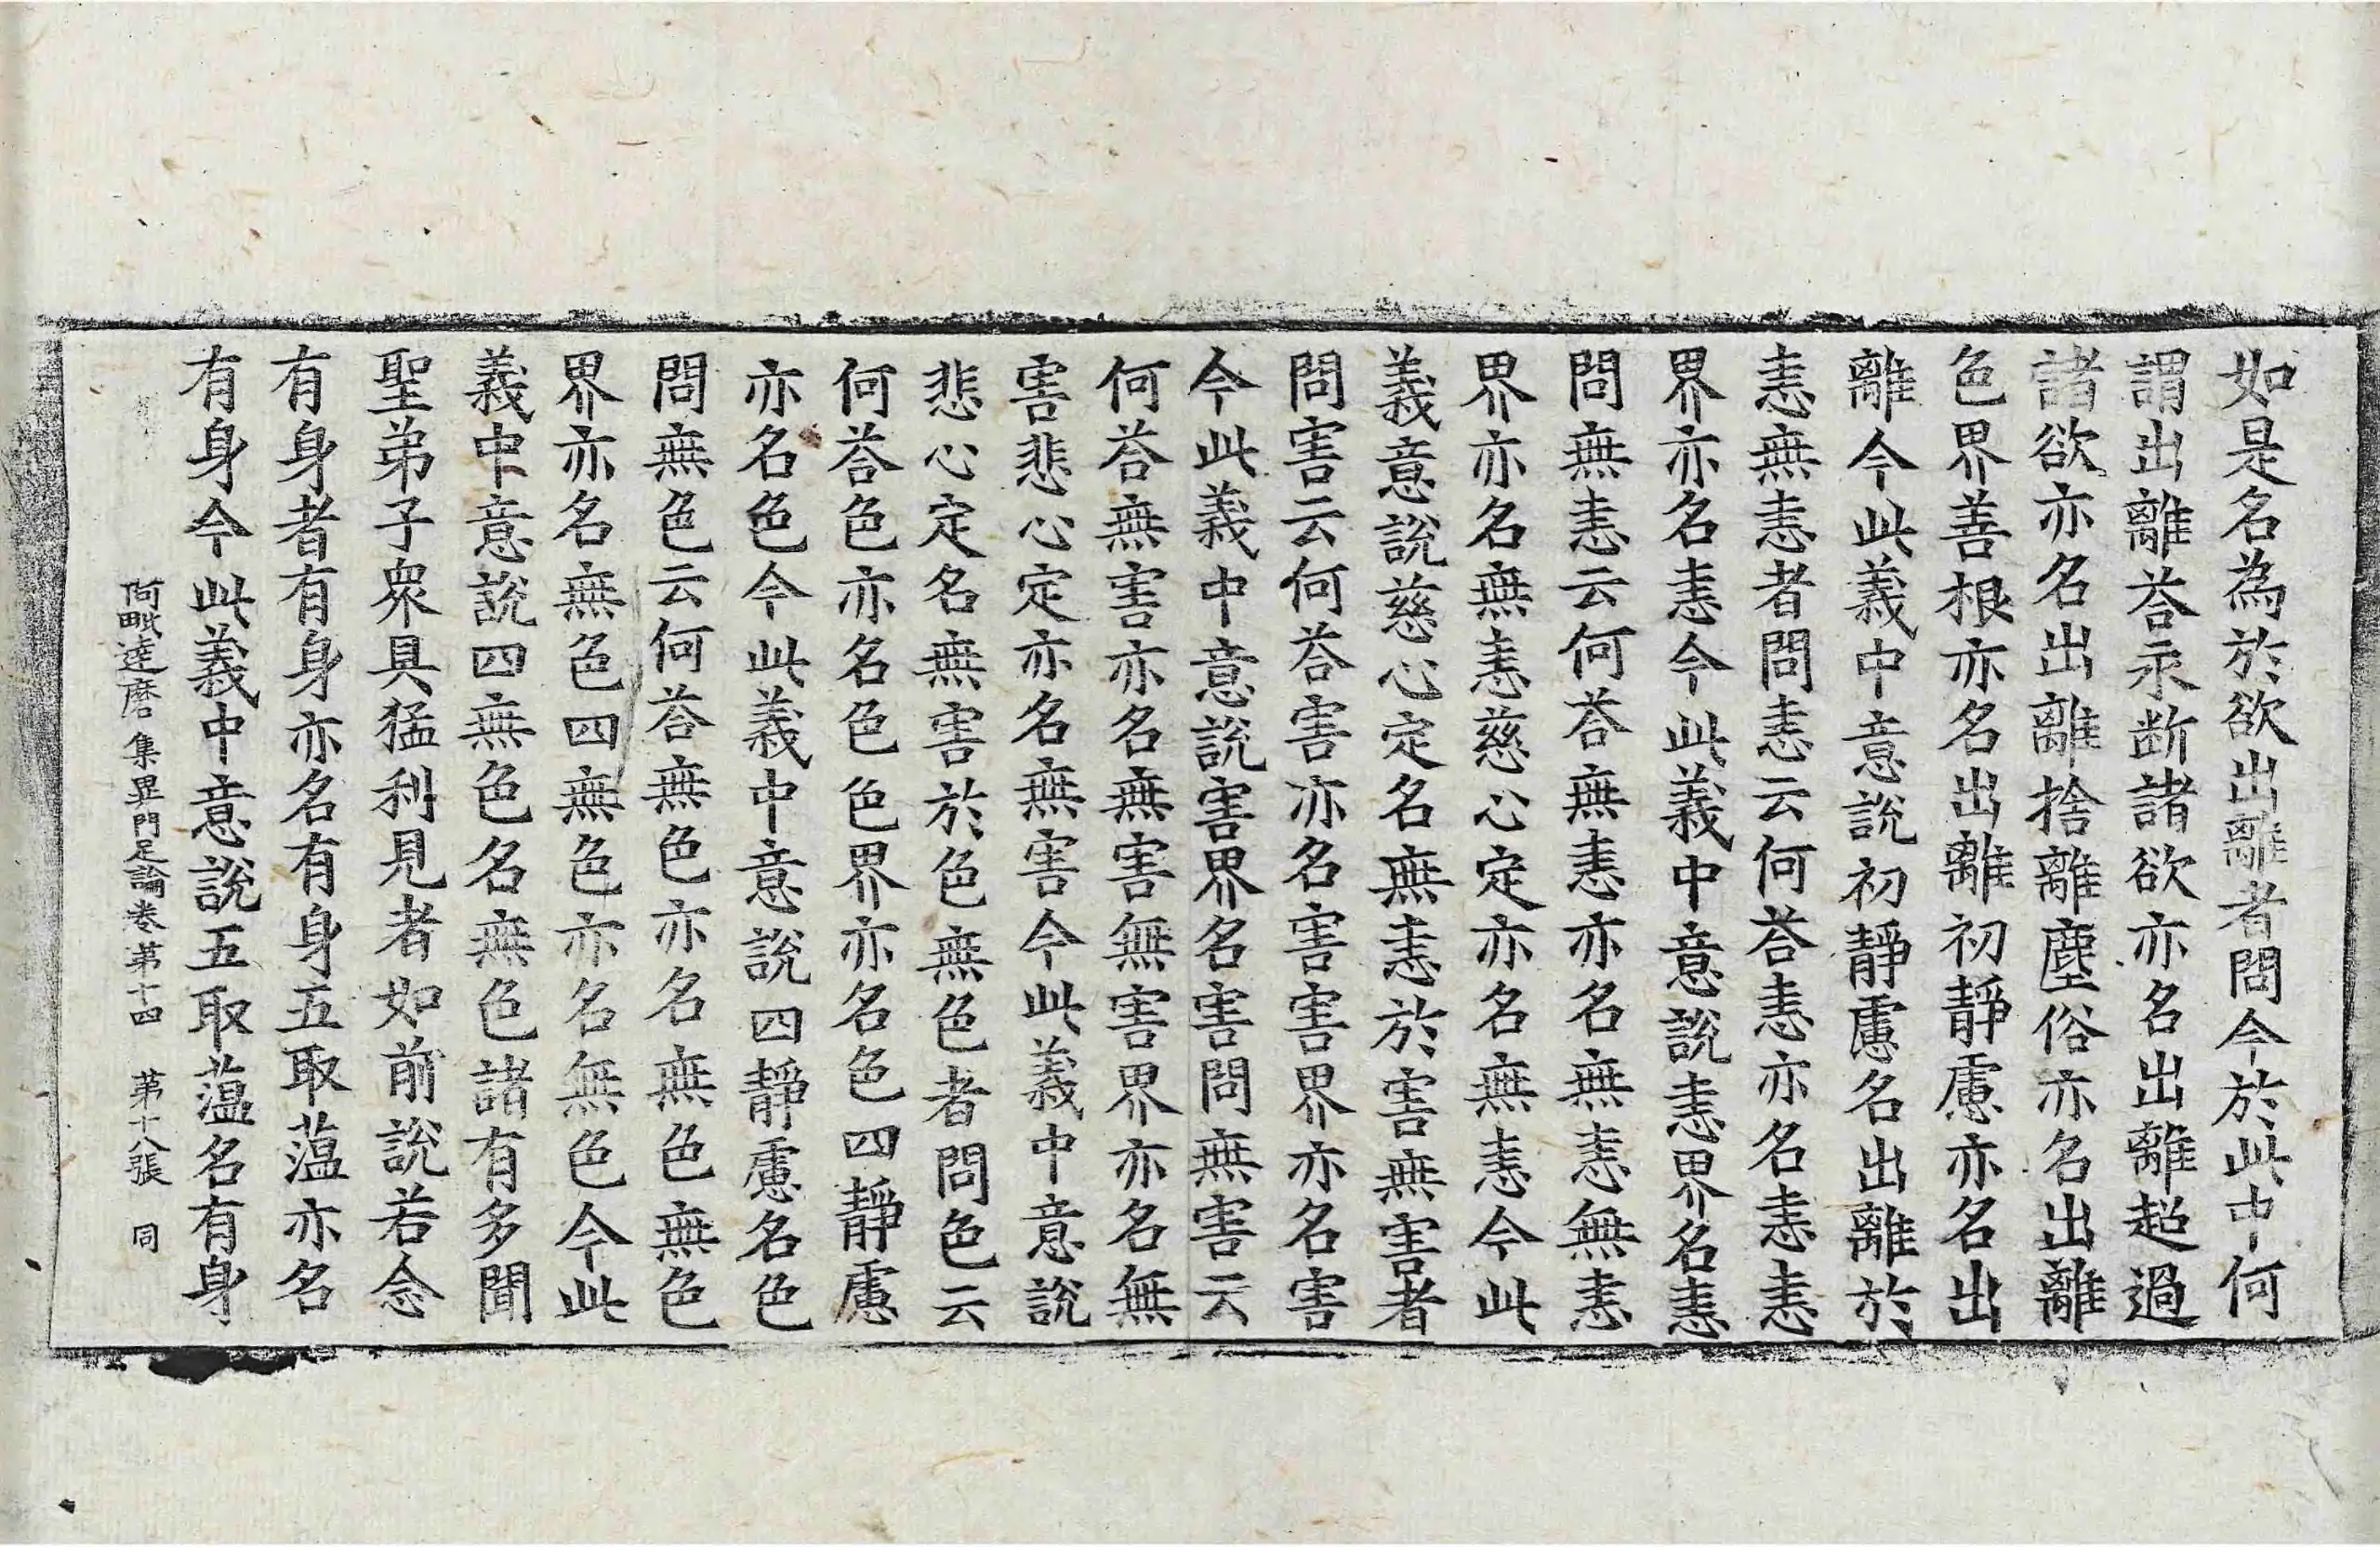 如是名為於欲出離者問今於此中何
謂出離荅永断諸欲亦名出離超過
諸欲亦名出離捨離塵俗亦名出離
色界善根亦名出離初靜慮亦名出
離今此義中意說初靜慮名出離於
恚無恚者問恚云何荅恚亦名恚恚
界亦名恚今此義中意說恚界名恚
問無恚云何荅無恚亦名無恚無恚
界亦名無恚慈心定亦名無恚今此
義意說慈心定名無恚於害無害者
問害云何荅害亦名害害界亦名害
今此義中意說害界名害問無害云
何荅無害亦名無害無害界亦名無
害悲心定亦名無害今此義中意說
悲心定名無害於色無色者問色云
何荅色亦名色色界亦名色四靜慮
亦名色今此義中意說四靜慮名色
問無色云何荅無色亦名無色無色
界亦名無色四無色亦名無色今此
義中意說四無色名無色諸有多聞
聖弟子眾具猛利見者如前說若念
有身者有身亦名有身五取蕰亦名
有身今此義中意說五取蕰名有身
阿毗達磨集異門足論卷第十四 第十八張 同